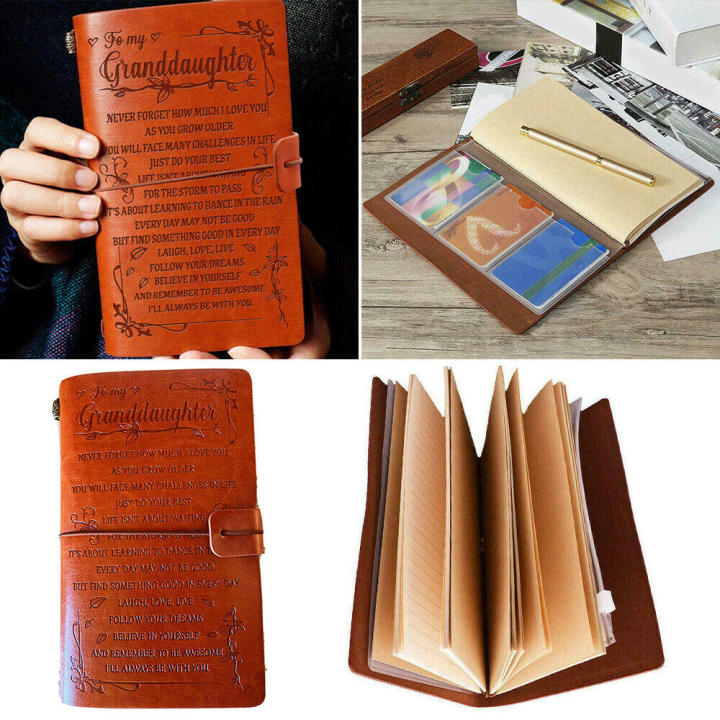 To my
Granddaughter
NEVER FORGET HOW MUCH I LOVE YOU
AS YOU GROW OLDER
YOU WILL FACE MANY CHALLENGES IN LIFE
JUST DO YOUR BEST
LIFE ISN'T ABOUT WAITING
FOR THE STORM TO PASS
IT'S ABOUT LEARNING TO DANCE IN THE RAIN
EVERY DAY MAY NOT BE GOOD
BUT FIND SOMETHING GOOD IN EVERY DAY
LAUGH, LOVE, LIVE
FOLLOW YOUR DREAMS
BELIEVE IN YOURSELF
AND REMEMBER TO BE AWESOME
I'LL ALWAYS BE WITH YOU
To my
Granddaughter
NEVER FORGET HOW MUCH I LOVE YOU
AS YOU GROW OLDER
YOU WILL FACE MANY CHALLENGES IN LIFE
JUST DO YOUR BEST
LIFE ISN'T ABOUT WAITING
FOR THE STORM TO
IT'S ABOUT LEARNING TO DANCE IN T
EVERY DAY MAY NOT BE GOOD
BUT FIND SOMETHING GOOD IN EVERY DAY
LAUGH, LOVE, LIVE
FOLLOW YOUR DREAMS
BELIEVE IN YOURSELF
AND REMEMBER TO BE AWESOME
I'LL ALWAYS BE WITH YOU